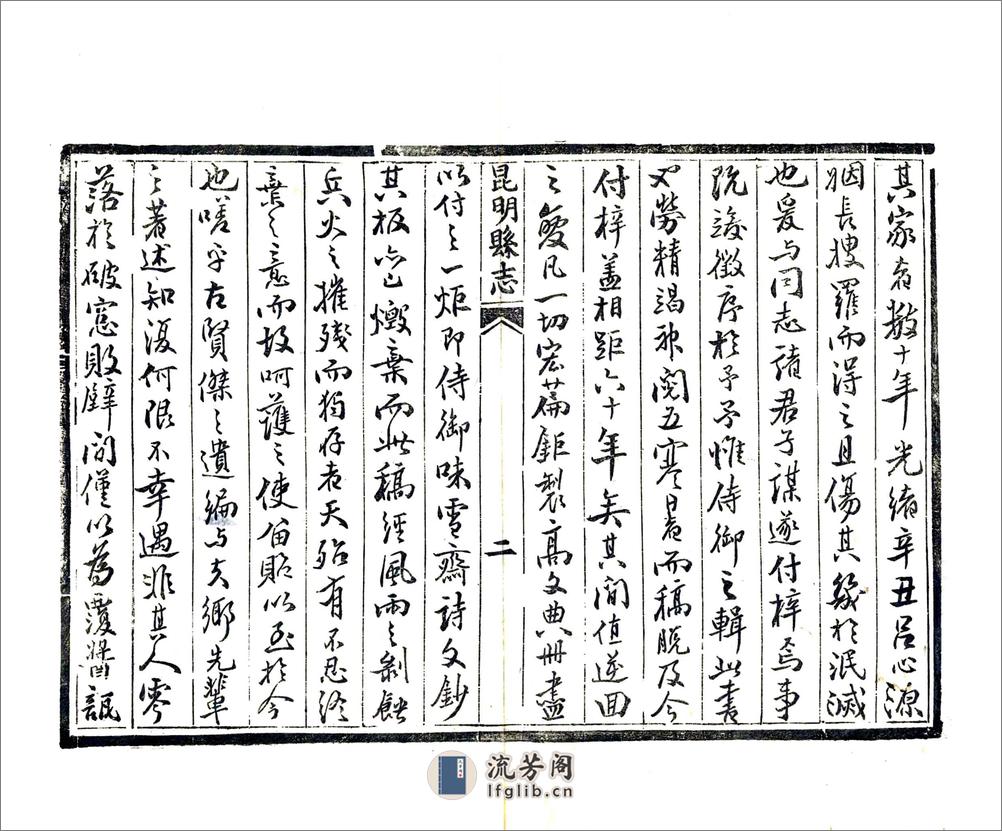 其家者數十年光緒辛丑呂心源
姻長搜羅而得之且傷其幾於泯滅
也爰与同志諸君子謀遂付梓焉事
既竣徵序於予予惟侍御之輯此書
也勞精竭神閱五寒暑而稿脫及今
付梓蓋相距六十年矣其間值逆回
之變凡一切宏篇鉅製高文典冊盡
昆明縣志
二
以付之一炬即侍御味雪齋詩文鈔
其板亦已燬棄而此稿經風雨之剝蝕
兵火之摧殘而獨存者天殆有不忍終
棄之意而故呵護之使留貽以至於今
也嗟乎古賢傑之遺編与夫鄉先輩
之著述知復何限不幸遇非其人零
落於破窓敗壁間僅以為覆醬瓿
流芳阁
lfglib.cn